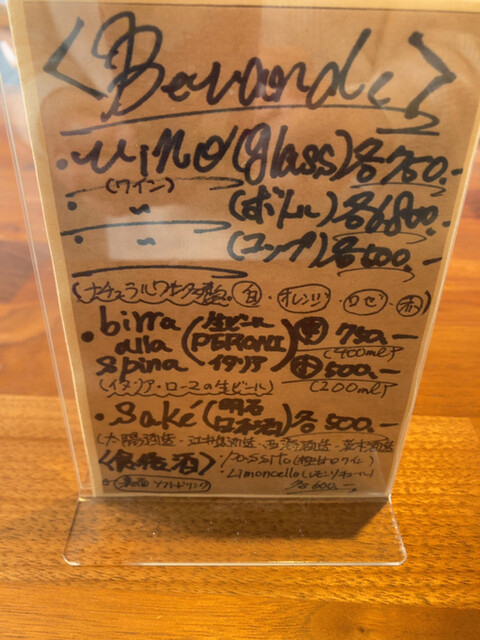 <Bevande>
・vino(glass)各750.-
(ワイン)
・〃 (ボトル)各6,800.-
・〃 (コップ)各600.-
(ナチュラルワイン 白・オレンジ・ロゼ・赤)
・birra alla spina (生ビール PERONI イタリア) 中 750.-
(400ml)
小 500.-
(200ml)
(イタリア・ローマの生ビール)
・Saké (明石 日本酒) 各500.-
(太陽酒造・江井ヶ嶋酒造・西海酒造・茨木酒造
<食後酒>・Passito(極甘口ワイン)
・Limoncello(レモンリキュール)
ソフトドリンク 各600.-